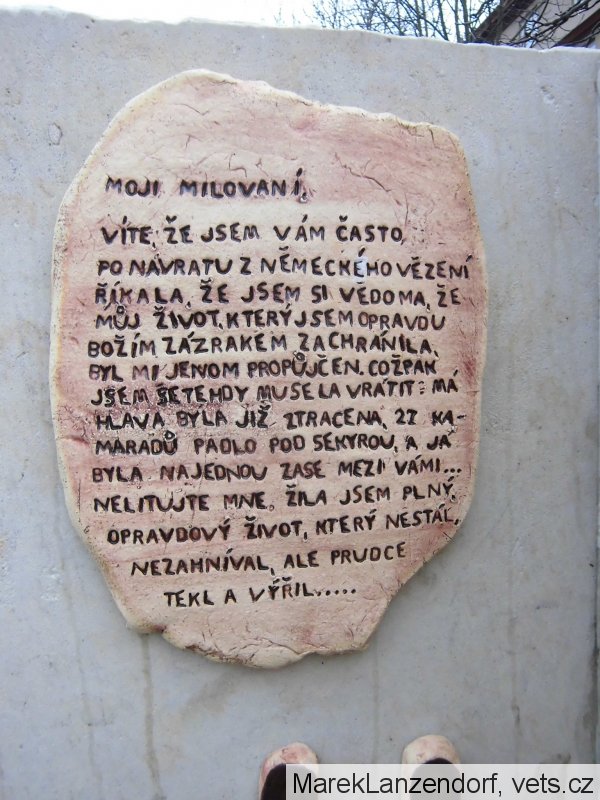 MOJI MILOVANÍ,
VÍTE, ŽE JSEM VÁM ČASTO,
PO NÁVRATU Z NĚMECKÉHO VĚZENÍ
ŘÍKALA, ŽE JSEM SI VĚDOMA, ŽE
MŮJ ŽIVOT, KTERÝ JSEM OPRAVDU
BOŽÍM ZÁZRAKEM ZACHRÁNILA,
BYL MI JENOM PROPŮJČEN. COŽPAK
JSEM SE TEHDY MUSELA VRÁTIT? MÁ
HLAVA BYLA JIŽ ZTRACENA, 22 KA-
MARADŮ PADLO POD SEKYROU, A JÁ
BYLA NAJEDNOU ZASE MEZI VÁMI...
NELITUJTE MNE. ŽILA JSEM PLNÝ,
OPRAVDOVÝ ŽIVOT, KTERÝ NESTÁL,
NEZAHNÍVAL, ALE PRUDCE
TEKL A VÝŘIL.....
MarekLanzendorf, vets.cz